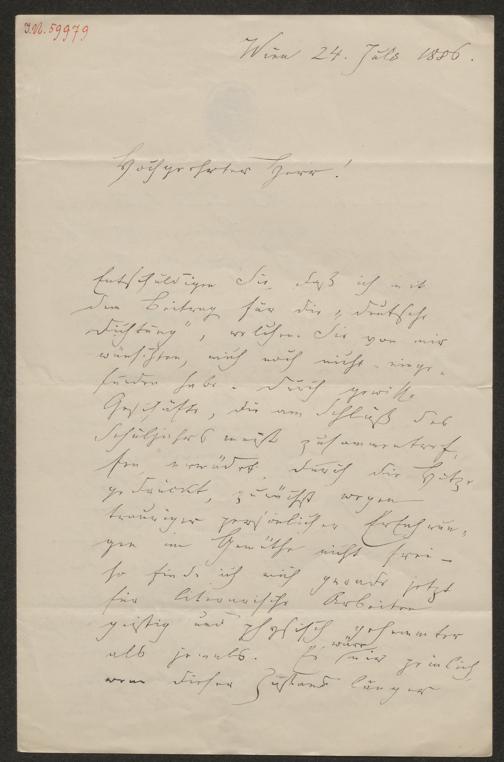 J.N. 59979
Wien 24. Juli 1886.
Hochgeehrter Herr!
Entschuldigen Sie, daß ich mit
dem Beitrag für die „deutsche
Dichtung“, welchen Sie von mir
wünschten, mich noch nicht einge-
funden habe. Durch gewisse
Geschäfte, die am Schluß des
Schuljahrs meist zusammentref-
fen ermüdet, durch die Hitze
gedrückt, zunächst wegen
trauriger persönlicher Erfahrun-
gen im Gemüthe nicht frei —
so finde ich mich gerade jetzt
für literarische Arbeiten
geistig und physisch gehemmter
als jemals. Es wäre mir peinlich
wenn dieser Zustand länger